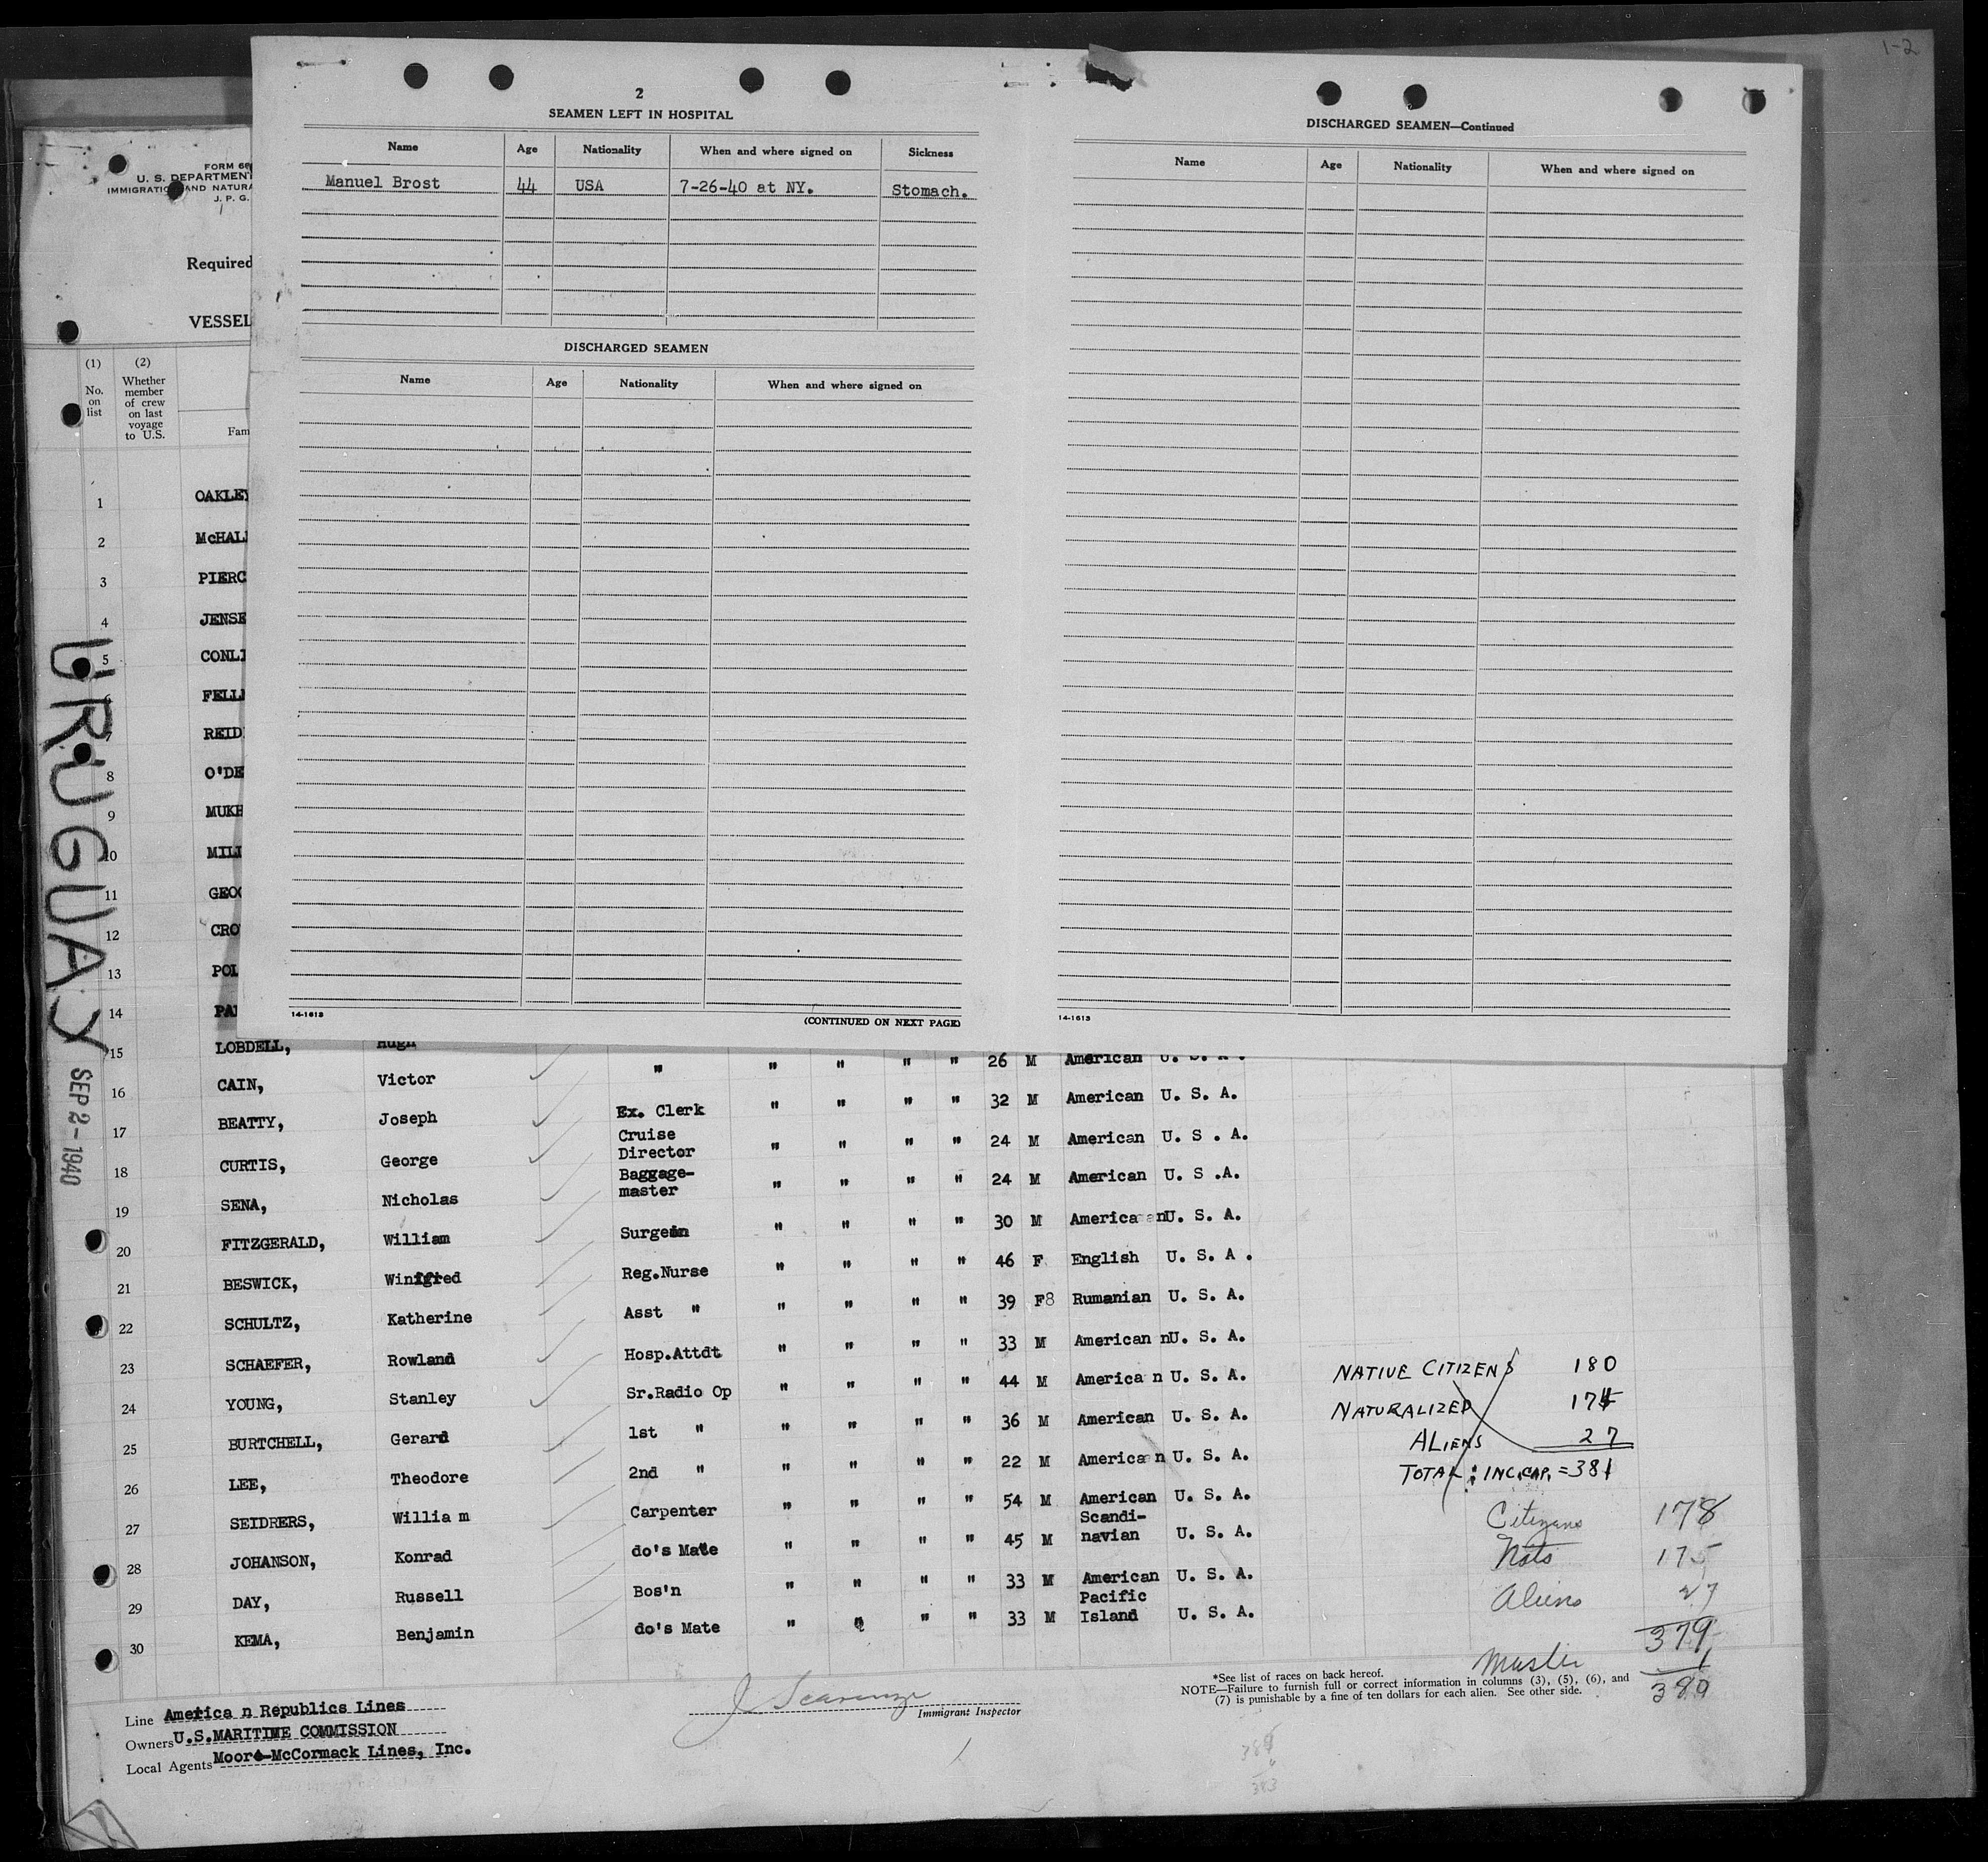 1-2
2
SEAMEN LEFT IN HOSPITAL
Name Age Nationality When and where signed on Sickness
Manuel Brost 44 USA 7-26-40 at NY. Stomach.
DISCHARGED SEAMEN
Name Age Nationality When and where signed on
14-1613
(CONTINUED ON NEXT PAGE)
DISCHARGED SEAMEN—Continued
Name Age Nationality When and where signed on
14-1613
FORM 68
U. S. DEPARTMENT
IMMIGRATION AND NATURA
J. P. G.
Required
VESSEL
(1) (2)
No. on list
Whether member of crew on last voyage to U.S.
Fam
1 OAKLEY
2 McHAL
3 PIERC
4 JENSE
5 CONLI
6 FELL
7 REID
8 O'DE
9 MUKH
10 MILL
11 GEO
12 CRO
13 POL
14 PA
15 LOBDELL, Hugh " " " " " 26 M American U. S. A.
16 CAIN, Victor Ex. Clerk " " " " 32 M American U. S. A.
17 BEATTY, Joseph Cruise Director " " " " 24 M American U. S . A.
18 CURTIS, George Baggage-master " " " " 24 M American U. S .A.
19 SENA, Nicholas Surgeon " " " " 30 M American U. S. A.
20 FITZGERALD, William Reg.Nurse " " " " 46 F English U. S. A .
21 BESWICK, Winifred Asst " " " " " 39 F8 Rumanian U. S. A.
22 SCHULTZ, Katherine Hosp.Attdt " " " " 33 M American nU. S. A.
23 SCHAEFER, Rowland Sr.Radio Op " " " " 44 M America n U. S. A.
24 YOUNG, Stanley 1st " " " " " 36 M American U. S. A.
25 BURTCHELL, Gerard 2nd " " " " " 22 M American U. S. A.
26 LEE, Theodore Carpenter " " " " 54 M American U. S. A.
27 SEIDRERS, Willia m do's Mate " " " " 45 M Scandi-navian U. S. A.
28 JOHANSON, Konrad Bos'n " " " " 33 M American U. S. A.
29 DAY, Russell do's Mate " " " " 33 M Pacific Island U. S. A.
30 KEMA, Benjamin
URUGUAY
SEP 2-1940
NATIVE CITIZENS 180
NATURALIZED 174
ALIENS 27
TOTAL: INC.CAP. =381
Citizens 178
Nats 175
Aliens 27
379
Master 1
380
Line America n Republics Lines
Owners U.S.MARITIME COMMISSION
Local Agents Moore-McCormack Lines, Inc.
Immigrant Inspector
*See list of races on back hereof.
NOTE—Failure to furnish full or correct information in columns (3), (5), (6), and
(7) is punishable by a fine of ten dollars for each alien. See other side.
383